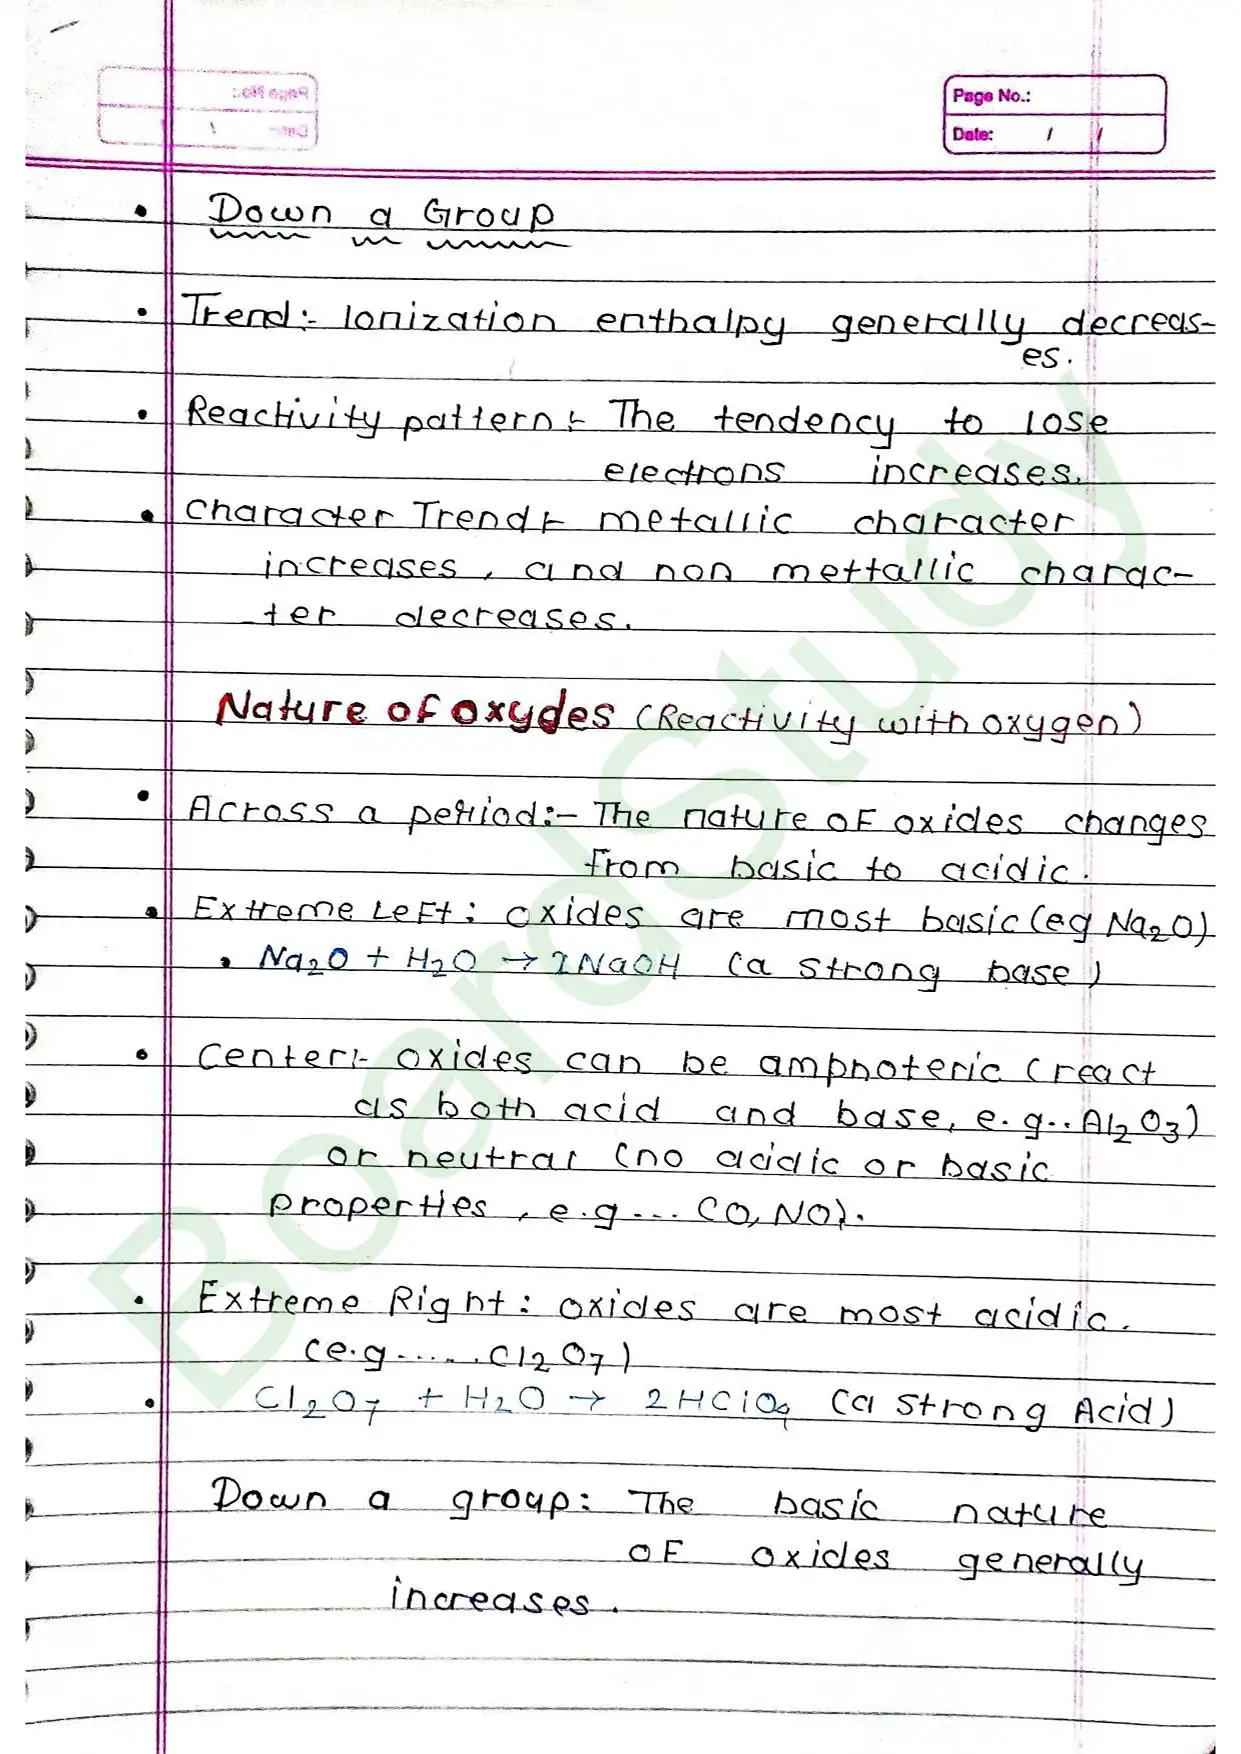 Page No.:
Date: / /
• Down a Group
• Trend:- Ionization enthalpy generally decreas-
es.
• Reactivity pattern:- The tendency to lose
electrons increases.
• Character Trend:- metallic character
increases, and non mettallic charac-
-ter decreases.
Nature of oxydes (Reactivity with oxygen)
• Across a period:- The nature of oxides changes
from basic to acidic.
• Extreme Left: oxides are most basic (eg Na₂O)
• Na₂O + H₂O → 2NaOH (a strong base)
• Center:- oxides can be amphoteric (react
as both acid and base, e.g.. Al₂O₃)
or neutral (no acidic or basic
properties, e.g... CO, NO).
• Extreme Right: oxides are most acidic.
(e.g...... Cl₂O₇)
• Cl₂O₇ + H₂O → 2HClO₄ (a strong Acid)
Down a group: The basic nature
of oxides generally
increases.
BoardStudy